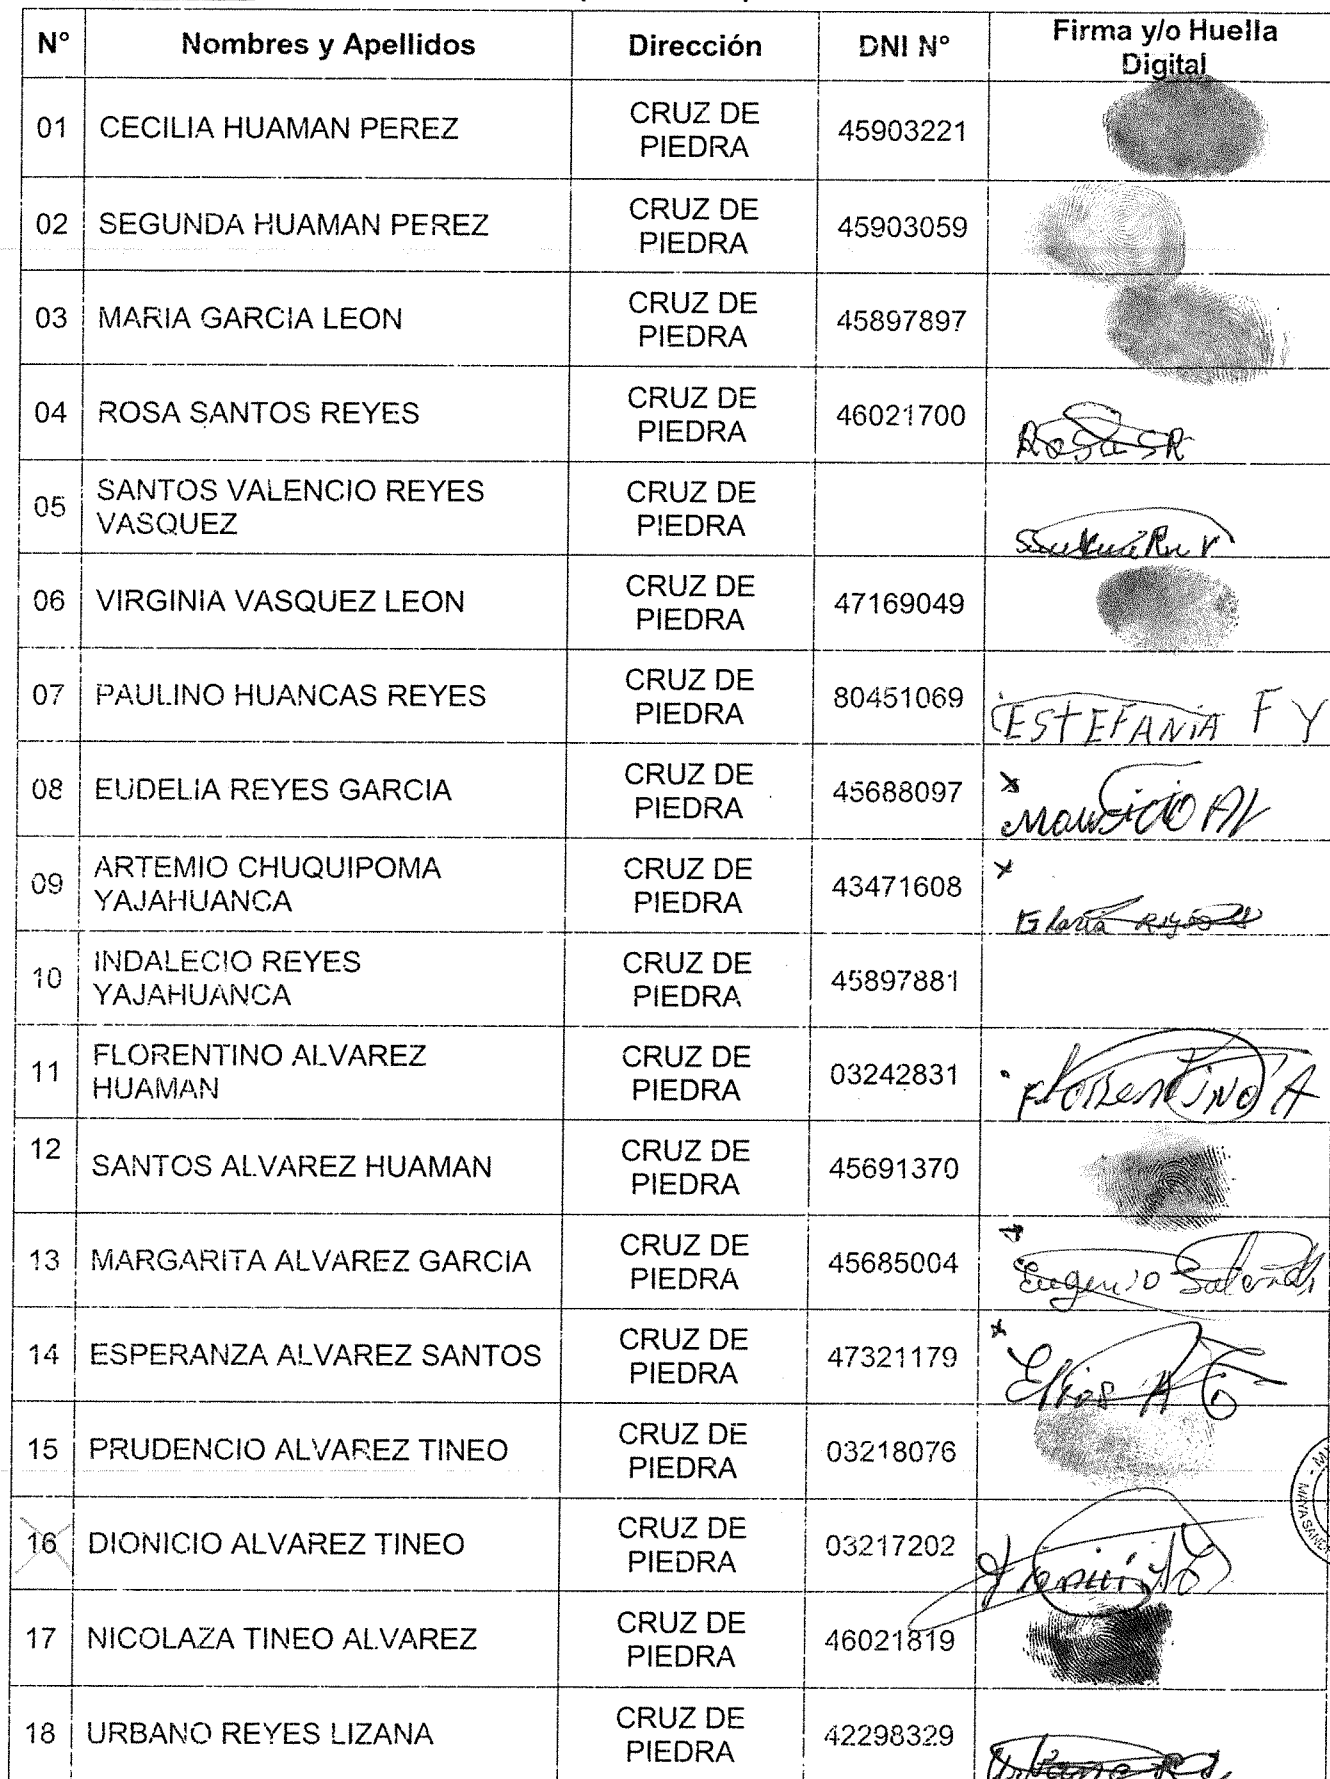 N° Nombres y Apellidos Dirección DNI N° Firma y/o Huella
Digital
01 CECILIA HUAMAN PEREZ CRUZ DE
PIEDRA 45903221
02 SEGUNDA HUAMAN PEREZ CRUZ DE
PIEDRA 45903059
03 MARIA GARCIA LEON CRUZ DE
PIEDRA 45897897
04 ROSA SANTOS REYES CRUZ DE
PIEDRA 46021700 Rosa SR
05 SANTOS VALENCIO REYES
VASQUEZ CRUZ DE
PIEDRA
06 VIRGINIA VASQUEZ LEON CRUZ DE
PIEDRA 47169049
07 PAULINO HUANCAS REYES CRUZ DE
PIEDRA 80451069 ESTEFANIA F Y
08 EUDELIA REYES GARCIA CRUZ DE
PIEDRA 45688097 x Mauricio
09 ARTEMIO CHUQUIPOMA
YAJAHUANCA CRUZ DE
PIEDRA 43471608 x
10 INDALECIO REYES
YAJAHUANCA CRUZ DE
PIEDRA 45897881
11 FLORENTINO ALVAREZ
HUAMAN CRUZ DE
PIEDRA 03242831 Florentino A
12 SANTOS ALVAREZ HUAMAN CRUZ DE
PIEDRA 45691370
13 MARGARITA ALVAREZ GARCIA CRUZ DE
PIEDRA 45685004 Eugenio
14 ESPERANZA ALVAREZ SANTOS CRUZ DE
PIEDRA 47321179 x Elias A
15 PRUDENCIO ALVAREZ TINEO CRUZ DE
PIEDRA 03218076
16 DIONICIO ALVAREZ TINEO CRUZ DE
PIEDRA 03217202
17 NICOLAZA TINEO ALVAREZ CRUZ DE
PIEDRA 46021819
18 URBANO REYES LIZANA CRUZ DE
PIEDRA 42298329